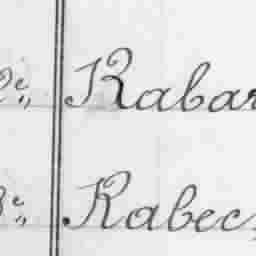 2e„ Rabar
3e„ Rabec